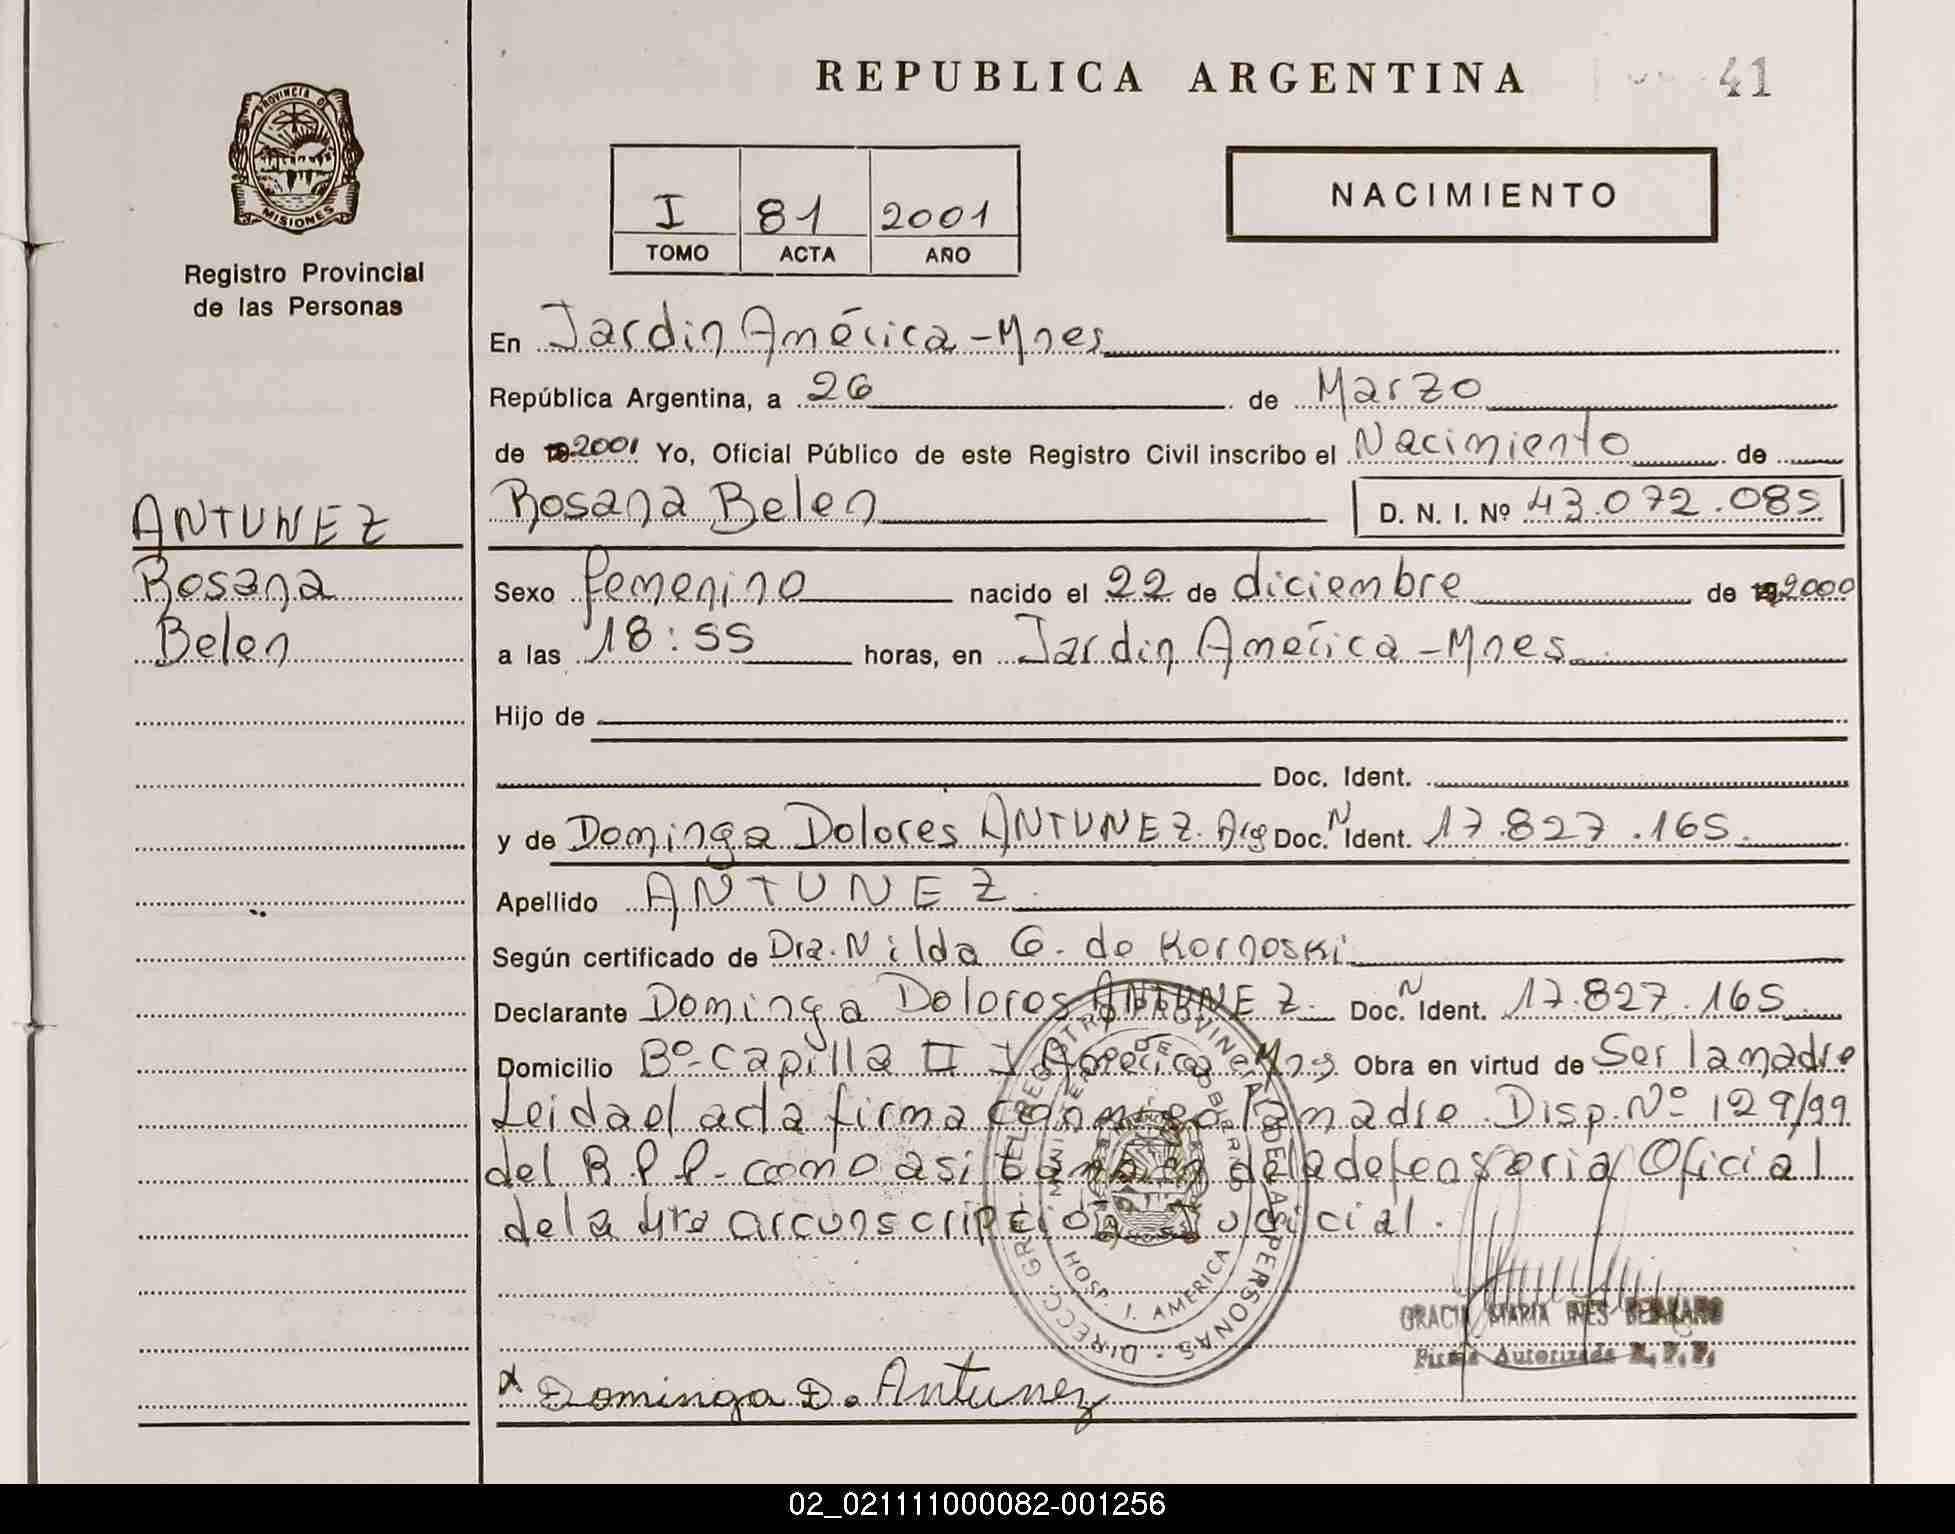 REPUBLICA ARGENTINA
41
PROVINCIA DE
MISIONES
Registro Provincial
de las Personas
I 81 2001
TOMO ACTA AÑO
NACIMIENTO
En Jardin América - Mnes
República Argentina, a 26 de Marzo
de 2001 Yo, Oficial Público de este Registro Civil inscribo el Nacimiento de
ANTUNEZ
Rosana Belen D. N. I. Nº 43.072.085
Rosana
Sexo femenino nacido el 22 de diciembre de 2000
Belen
a las 18:55 horas, en Jardin America - Mnes
Hijo de
Doc. Ident.
y de Dominga Dolores ANTUNEZ. Arg Doc. N Ident. 17.827.165.
Apellido ANTUNEZ.
Según certificado de Dra. Nilda G. de Kornoski
Declarante Dominga Dolores ANTUNEZ. Doc. N Ident. 17.827.165
Domicilio Bº Capilla II J America Mns Obra en virtud de Ser la madre
Leida el acta firma conmigo la madre. Disp. Nº 129/99
del R.P.P. como asi tambien de la defensoria Oficial
de la 4ta circunscripcion Judicial.
HOSP. J. AMERICA
GRACIA MARIA INES
Firma Autorizada R. P. P.
x Dominga D. Antunez
02_021111000082-001256